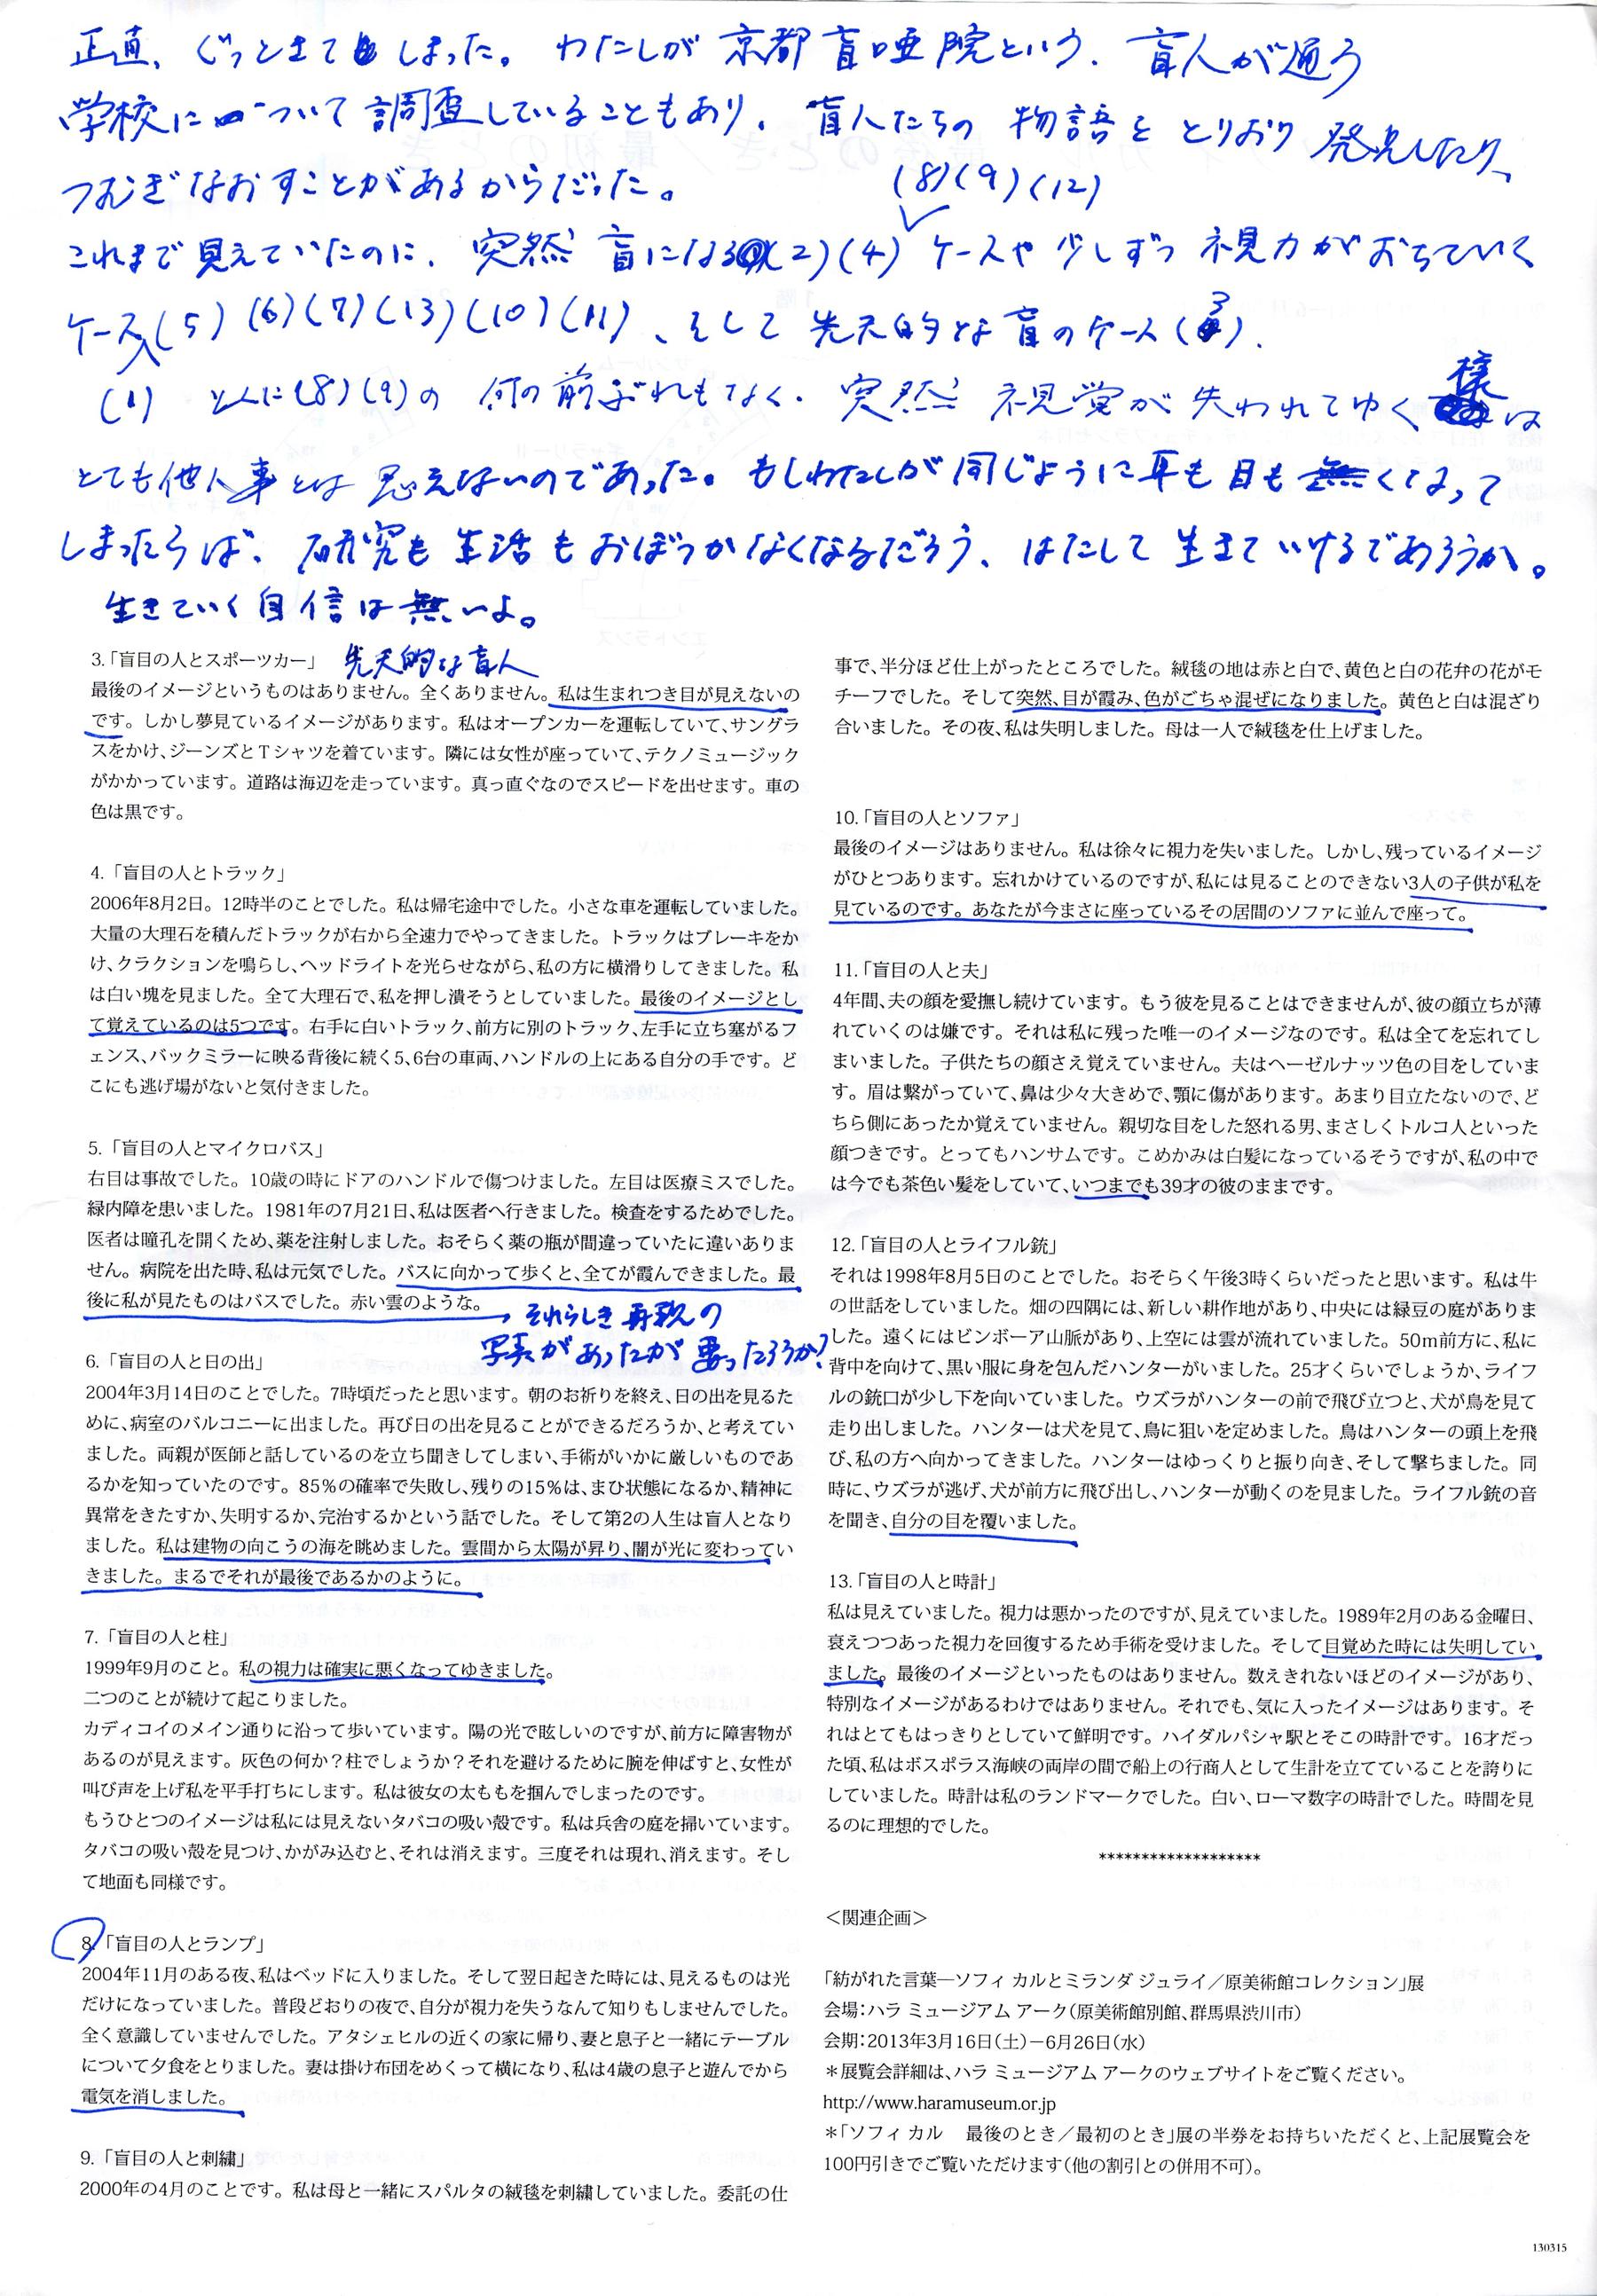 正直、ぐっときてしまった。わたしが京都盲唖院という、盲人が通う
学校について調査していることもあり、盲人たちの物語をとりおり発見したり、
つむぎなおすことがあるからだった。
(8)(9)(12)
これまで見えていたのに、突然盲になる(2)(4)ケースや少しずつ視力がおちていく
ケース(5)(6)(7)(13)(10)(11)、そして先天的な盲のケース(3)。
(1) とくに(8)(9)の何の前ぶれもなく、突然視覚が失われてゆく様は
とても他人事とは思えないのであった。もしわたしが同じように耳も目も無くなって
しまったらば、研究も生活もおぼつかなくなるだろう、はたして生きていけるであろうか。
生きていく自信は無いよ。
3.「盲目の人とスポーツカー」 先天的な盲人
最後のイメージというものはありません。全くありません。私は生まれつき目が見えないの
です。しかし夢見ているイメージがあります。私はオープンカーを運転していて、サングラ
スをかけ、ジーンズとTシャツを着ています。隣には女性が座っていて、テクノミュージック
がかかっています。道路は海辺を走っています。真っ直ぐなのでスピードを出せます。車の
色は黒です。
4.「盲目の人とトラック」
2006年8月2日。12時半のことでした。私は帰宅途中でした。小さな車を運転していました。
大量の大理石を積んだトラックが右から全速力でやってきました。トラックはブレーキをか
け、クラクションを鳴らし、ヘッドライトを光らせながら、私の方に横滑りしてきました。私
は白い塊を見ました。全て大理石で、私を押し潰そうとしていました。最後のイメージとし
て覚えているのは5つです。右手に白いトラック、前方に別のトラック、左手に立ち塞がるフ
ェンス、バックミラーに映る背後に続く5、6台の車両、ハンドルの上にある自分の手です。ど
こにも逃げ場がないと気付きました。
5.「盲目の人とマイクロバス」
右目は事故でした。10歳の時にドアのハンドルで傷つけました。左目は医療ミスでした。
緑内障を患いました。1981年の7月21日、私は医者へ行きました。検査をするためでした。
医者は瞳孔を開くため、薬を注射しました。おそらく薬の瓶が間違っていたに違いありま
せん。病院を出た時、私は元気でした。バスに向かって歩くと、全てが霞んできました。最
後に私が見たものはバスでした。赤い雲のような。
それらしき再現の
写真があったが要ったろうか?
6.「盲目の人と日の出」
2004年3月14日のことでした。7時頃だったと思います。朝のお祈りを終え、日の出を見るた
めに、病室のバルコニーに出ました。再び日の出を見ることができるだろうか、と考えてい
ました。両親が医師と話しているのを立ち聞きしてしまい、手術がいかに厳しいものであ
るかを知っていたのです。85%の確率で失敗し、残りの15%は、まひ状態になるか、精神に
異常をきたすか、失明するか、完治するかという話でした。そして第2の人生は盲人となり
ました。私は建物の向こうの海を眺めました。雲間から太陽が昇り、闇が光に変わってい
きました。まるでそれが最後であるかのように。
7.「盲目の人と柱」
1999年9月のこと。私の視力は確実に悪くなってゆきました。
二つのことが続けて起こりました。
カディコイのメイン通りに沿って歩いています。陽の光で眩しいのですが、前方に障害物が
あるのが見えます。灰色の何か?柱でしょうか?それを避けるために腕を伸ばすと、女性が
叫び声を上げ私を平手打ちにします。私は彼女の太ももを掴んでしまったのです。
もうひとつのイメージは私には見えないタバコの吸い殻です。私は兵舎の庭を掃いています。
タバコの吸い殻を見つけ、かがみ込むと、それは消えます。三度それは現れ、消えます。そし
て地面も同様です。
8.「盲目の人とランプ」
2004年11月のある夜、私はベッドに入りました。そして翌日起きた時には、見えるものは光
だけになっていました。普段どおりの夜で、自分が視力を失うなんて知りもしませんでした。
全く意識していませんでした。アタシェヒルの近くの家に帰り、妻と息子と一緒にテーブル
について夕食をとりました。妻は掛け布団をめくって横になり、私は4歳の息子と遊んでから
電気を消しました。
9.「盲目の人と刺繍」
2000年の4月のことです。私は母と一緒にスパルタの絨毯を刺繍していました。委託の仕
事で、半分ほど仕上がったところでした。絨毯の地は赤と白で、黄色と白の花弁の花がモ
チーフでした。そして突然、目が霞み、色がごちゃ混ぜになりました。黄色と白は混ざり
合いました。その夜、私は失明しました。母は一人で絨毯を仕上げました。
10.「盲目の人とソファ」
最後のイメージはありません。私は徐々に視力を失いました。しかし、残っているイメージ
がひとつあります。忘れかけているのですが、私には見ることのできない3人の子供が私を
見ているのです。あなたが今まさに座っているその居間のソファに並んで座って。
11.「盲目の人と夫」
4年間、夫の顔を愛撫し続けています。もう彼を見ることはできませんが、彼の顔立ちが薄
れていくのは嫌です。それは私に残った唯一のイメージなのです。私は全てを忘れてし
まいました。子供たちの顔さえ覚えていません。夫はヘーゼルナッツ色の目をしていま
す。眉は繋がっていて、鼻は少々大きめで、顎に傷があります。あまり目立たないので、ど
ちら側にあったか覚えていません。親切な目をした怒れる男、まさしくトルコ人といった
顔つきです。とってもハンサムです。こめかみは白髪になっているそうですが、私の中で
は今でも茶色い髪をしていて、いつまでも39才の彼のままです。
12.「盲目の人とライフル銃」
それは1998年8月5日のことでした。おそらく午後3時くらいだったと思います。私は牛
の世話をしていました。畑の四隅には、新しい耕作地があり、中央には緑豆の庭がありま
した。遠くにはビンボーア山脈があり、上空には雲が流れていました。50m前方に、私に
背中を向けて、黒い服に身を包んだハンターがいました。25才くらいでしょうか、ライフ
ルの銃口が少し下を向いていました。ウズラがハンターの前で飛び立つと、犬が鳥を見て
走り出しました。ハンターは犬を見て、鳥に狙いを定めました。鳥はハンターの頭上を飛
び、私の方へ向かってきました。ハンターはゆっくりと振り向き、そして撃ちました。同
時に、ウズラが逃げ、犬が前方に飛び出し、ハンターが動くのを見ました。ライフル銃の音
を聞き、自分の目を覆いました。
13.「盲目の人と時計」
私は見えていました。視力は悪かったのですが、見えていました。1989年2月のある金曜日、
衰えつつあった視力を回復するため手術を受けました。そして目覚めた時には失明してい
ました。最後のイメージといったものはありません。数えきれないほどのイメージがあり、
特別なイメージがあるわけではありません。それでも、気に入ったイメージはあります。そ
れはとてもはっきりとしていて鮮明です。ハイダルパシャ駅とそこの時計です。16才だっ
た頃、私はボスポラス海峡の両岸の間で船上の行商人として生計を立てていることを誇りに
していました。時計は私のランドマークでした。白い、ローマ数字の時計でした。時間を見
るのに理想的でした。
*******************
<関連企画>
「紡がれた言葉―ソフィ カルとミランダ ジュライ/原美術館コレクション」展
会場:ハラ ミュージアム アーク(原美術館別館、群馬県渋川市)
会期:2013年3月16日(土)−6月26日(水)
*展覧会詳細は、ハラ ミュージアム アークのウェブサイトをご覧ください。
http://www.haramuseum.or.jp
*「ソフィ カル 最後のとき/最初のとき」展の半券をお持ちいただくと、上記展覧会を
100円引きでご覧いただけます(他の割引との併用不可)。
130315